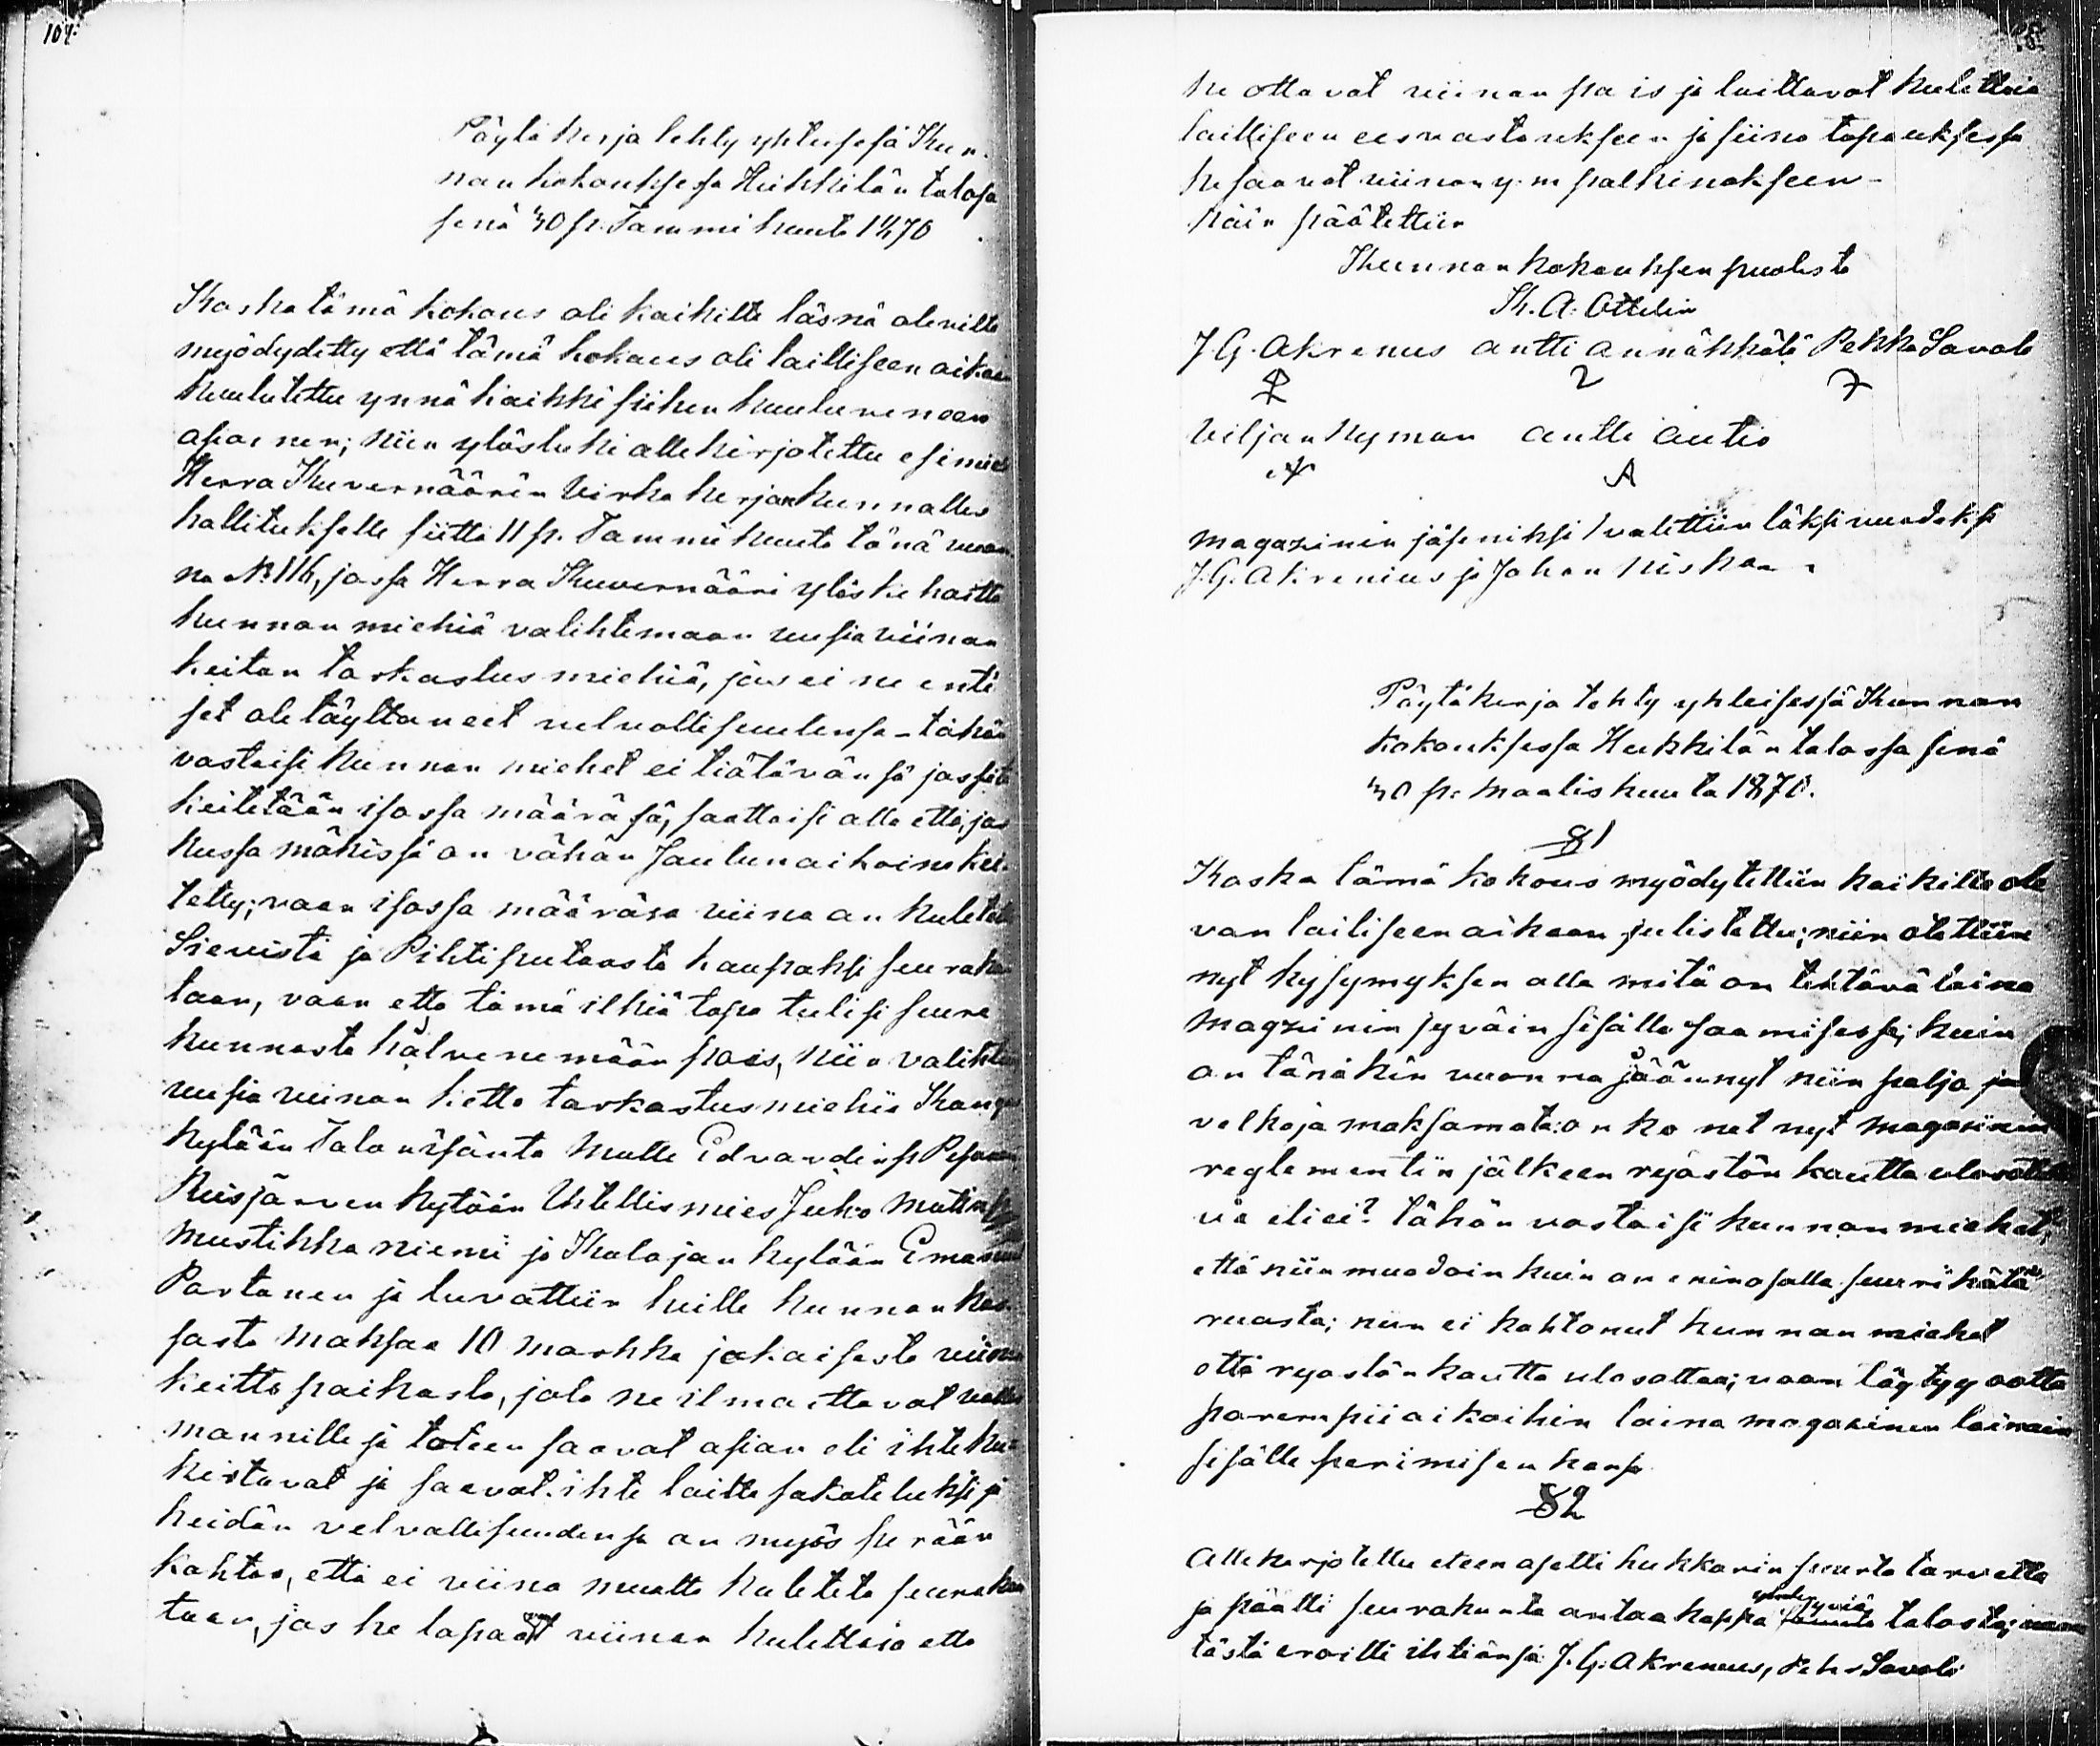 107.
Pöytä kirja tehty yhteisesä Kun-
nan kokouksessa Heikkilän talosa
senä 30 p. Tammi kuuta 1870
Koska tämä kokous oli kaikilta läsnä olevilta
myödydetty että tämä kokous oli lailliseen aikaan
kuulutettu ynnä kaikki siihen kuuluvenoen
asioinen; niin ylösluki allekirjotettu esimies
Herra Kuvernöörin Virka kirjan kunnalles
hallitukselle siittä 11 p. Tammikuuta tänä vuon-
na No 116, jossa Herra Kuvernööri ylöskehoitta
kunnan miehiä valihtemaan uusia viinan
keiton tarkastus miehiä, jos ei ne enti
set ole täyttäneet velvollisuutensa – tähän
vastaisi kunnan miehet ei tiätävänsä jos sitä
keitetään isossa määräsä, saattaisi olla että, jos
kussa mökissä on vähän Joulun aikoina kei-
tetty; vaan isossa määräsä viina on kuletettu
Sievistä ja Pihtiputaasta kaupaksi seurakun
taan, vaan että tämä ilkiä tapa tulisi seura
kunnasta hälvenemään pois, niin valihtiin
uusia viinan keitto tarkastusmiehiä Kangas
kylään Talonisäntä Matti Edvardinp Pesonen
Reisjärven kylään Uhtellismies Juho Matinp
Mustikka niemi ja Kalajan kylään Emanuel
Partanen ja luvattiin heille kunnan kas-
sasta maksaa 10 markka jokaisesta viinan
keitto paikasta, jota ne ilmoittavat vallas
mannille ja toteen saavat asian eli ihte ku-
kistavat ja saavat ihte laitta sakoteluksi ja
heidän velvollisuudensa on myös perään
kahtoa, että ei viina muutta kuleteta seurakun
taan, jos he tapaavat viinan kulettaja että
108.
he ottavat viinan pois ja laittavat kulettaja
lailliseen eesvastaukseen ja siina tapauksessa
he saavat viinan y.m palkinokseen –
Näin päätettiin
Kunnan kokouksen puolesta
K. A. Ottelin
J. G. Akrenius Antti Annäkkälä Pekka Savola
Viljan Nyman Antti Autio
A
Magasinin jäseniksi valittiin läksi vuodeksi
J. G. Akrenius ja Johan Niskan
Pöytäkirja tehty yhteisessä Kunnan
kokouksessa Heikkilän talossa senä
30 p. Maaliskuuta 1870.
§ 1
Koska tämä kokous myödytettiin kaikilta ole
van lailiseen aikaan julistettu; niin otettiin
nyt kysymyksen alla mitä on tehtävä laina
Magzinin jyväin sisälle saamisessa; kuin
on tänäkin vuonna jäänyt niin paljo jyvä
velkoja maksamata: on ko net nyt magasinin
reglementin jälkeen ryöstön kautta ulosotta
va eli ei? tähän vastaisi kunnan miehet;
että niin muodoin kuin on eninosalla suuri hätä
ruasta; niin ei kahtonut kunnan miehet
että ryöstön kautta ulosottaa; vaan täytyy ootta
parempii aikoihin laina magasinen lainain
sisälle perimisen kansa
§ 2
Allekirjotettu eteen asetti hukkarin suurta tarvetta
ja päätti seurakunta antaa kappa jyviä talosta; vaan
tästä eroitti ihtiänsä J. G. Akrenius, Pekka Savola